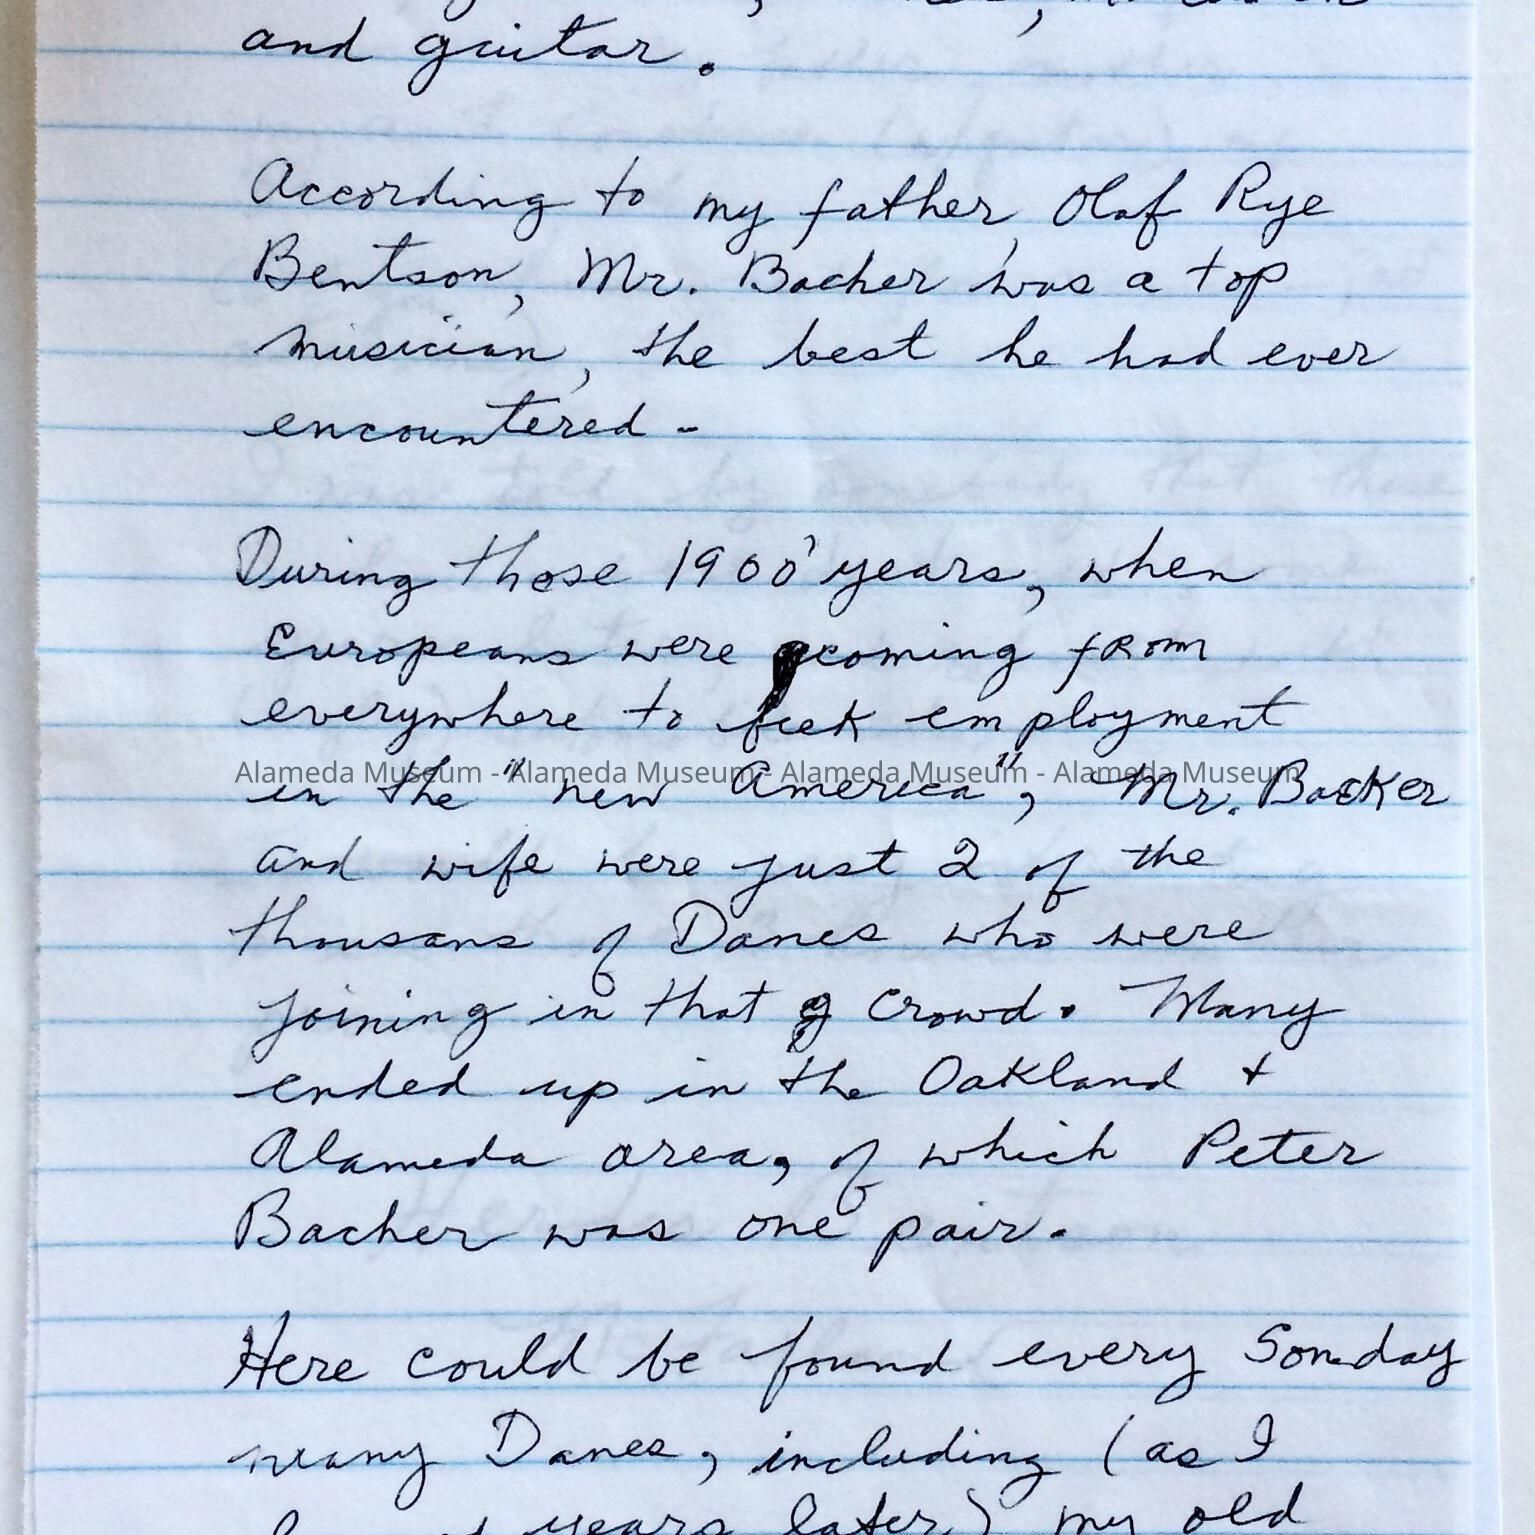 and guitar.
According to my father, Olaf Rye
Bentson, Mr. Bacher was a top
musician, the best he had ever
encountered -
During those 1900' years, when
Europeans were coming from
everywhere to seek employment
Alameda Museum - Alameda Museum - Alameda Museum - Alameda Museum
in the "new America", Mr. Backer
and wife were just 2 of the
thousans of Danes who were
joining in that crowd. Many
ended up in the Oakland +
Alameda area, of which Peter
Bacher was one pair.
Here could be found every Sonday
many Danes, including (as I
years later) my old